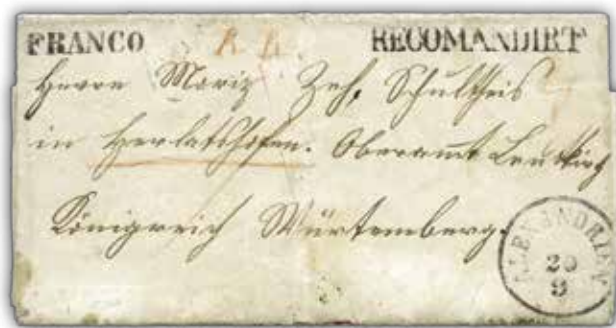 FRANCO R. R. RECOMANDIRT
Herrn Moriz Zeh, Schultheis
in Herlatshofen. Oberamt Leutkirch
Königreich Würtemberg.
ALEXANDRIEN
20
9